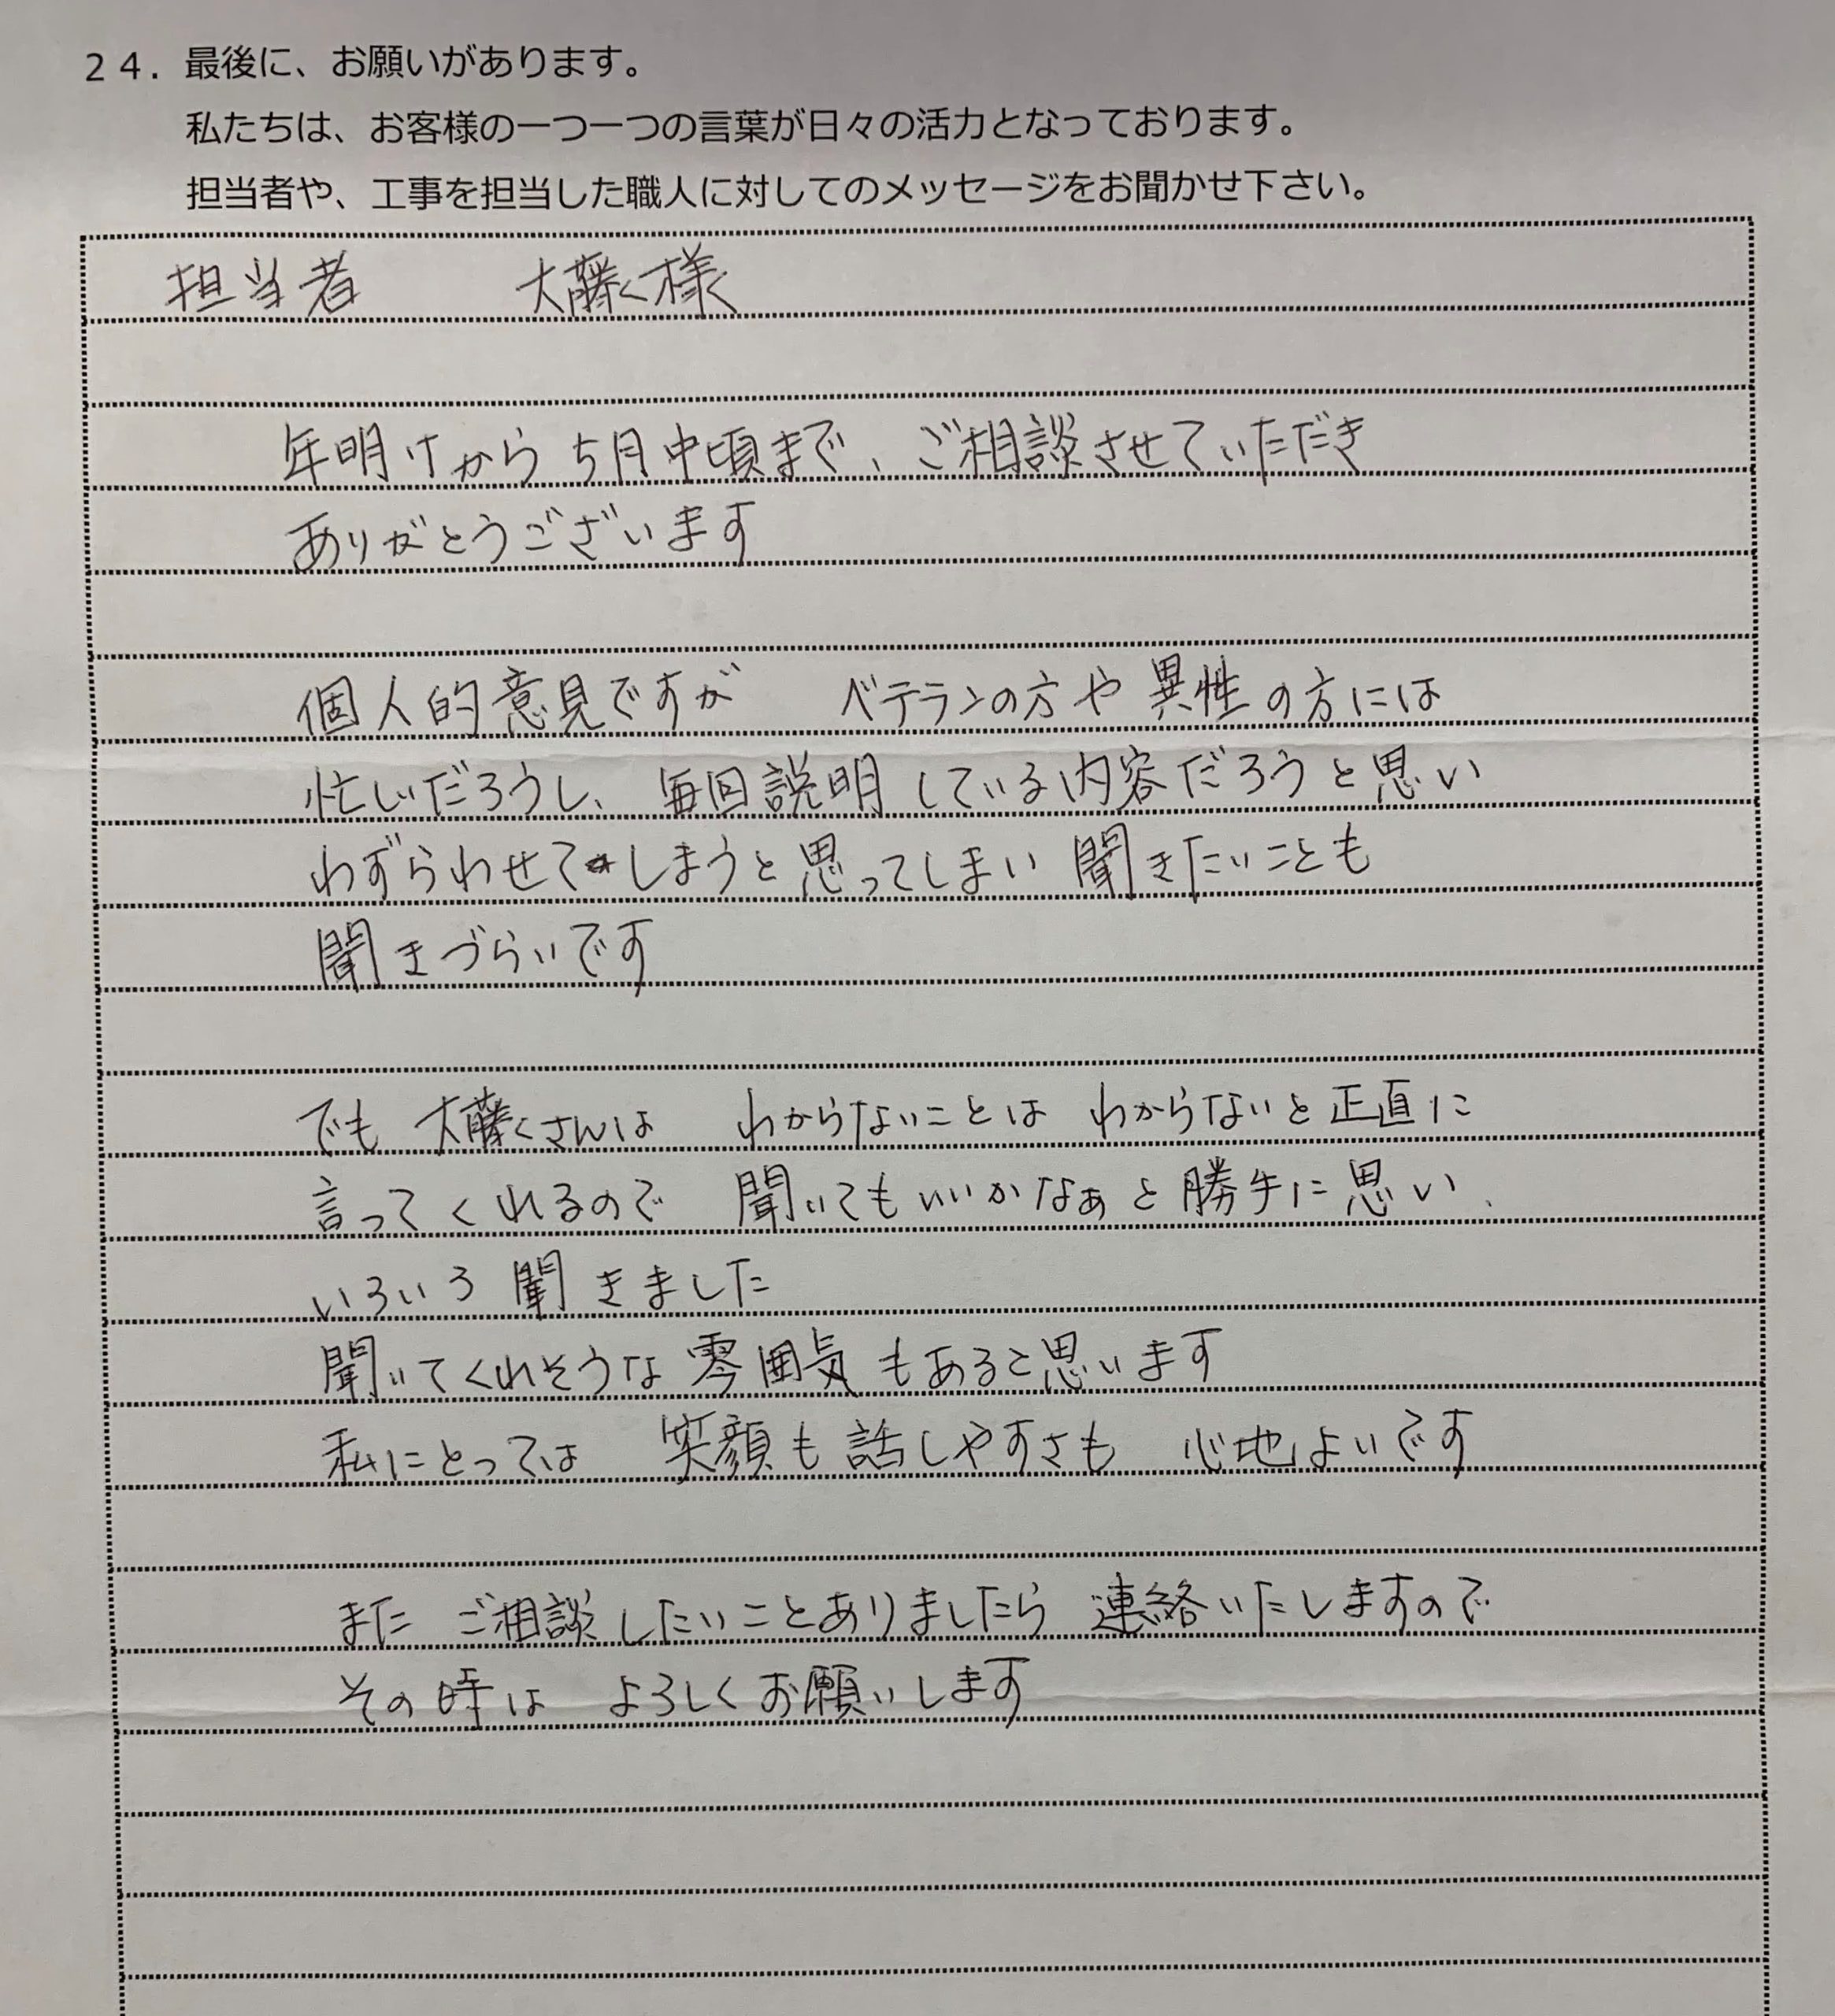 ２４．最後に、お願いがあります。
私たちは、お客様の一つ一つの言葉が日々の活力となっております。
担当者や、工事を担当した職人に対してのメッセージをお聞かせ下さい。
担当者　大藤様
年明けから5月中頃まで、ご相談させていただき
ありがとうございます
個人的意見ですが　ベテランの方や異性の方には
忙しいだろうし、毎回説明している内容だろうと思い
わずらわせてしまうと思ってしまい 聞きたいことも
聞きづらいです
でも 大藤さんは　わからないことは わからないと正直に
言ってくれるので　聞いてもいいかなぁと勝手に思い、
いろいろ聞きました
聞いてくれそうな雰囲気もあると思います
私にとっては　笑顔も話しやすさも　心地よいです
また ご相談したいことありましたら 連絡いたしますので
その時は　よろしくお願いします